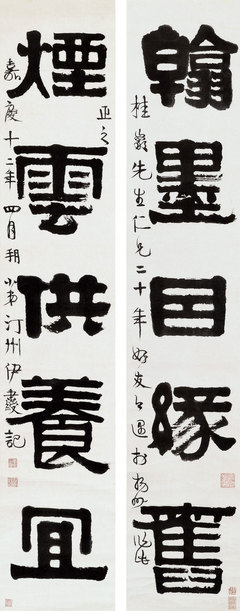 翰墨因緣舊
先生仁兄二十年好友今遇於揚州
正之
煙雲供養宜
嘉慶十二年四月朔小弟汀州伊秉綬記